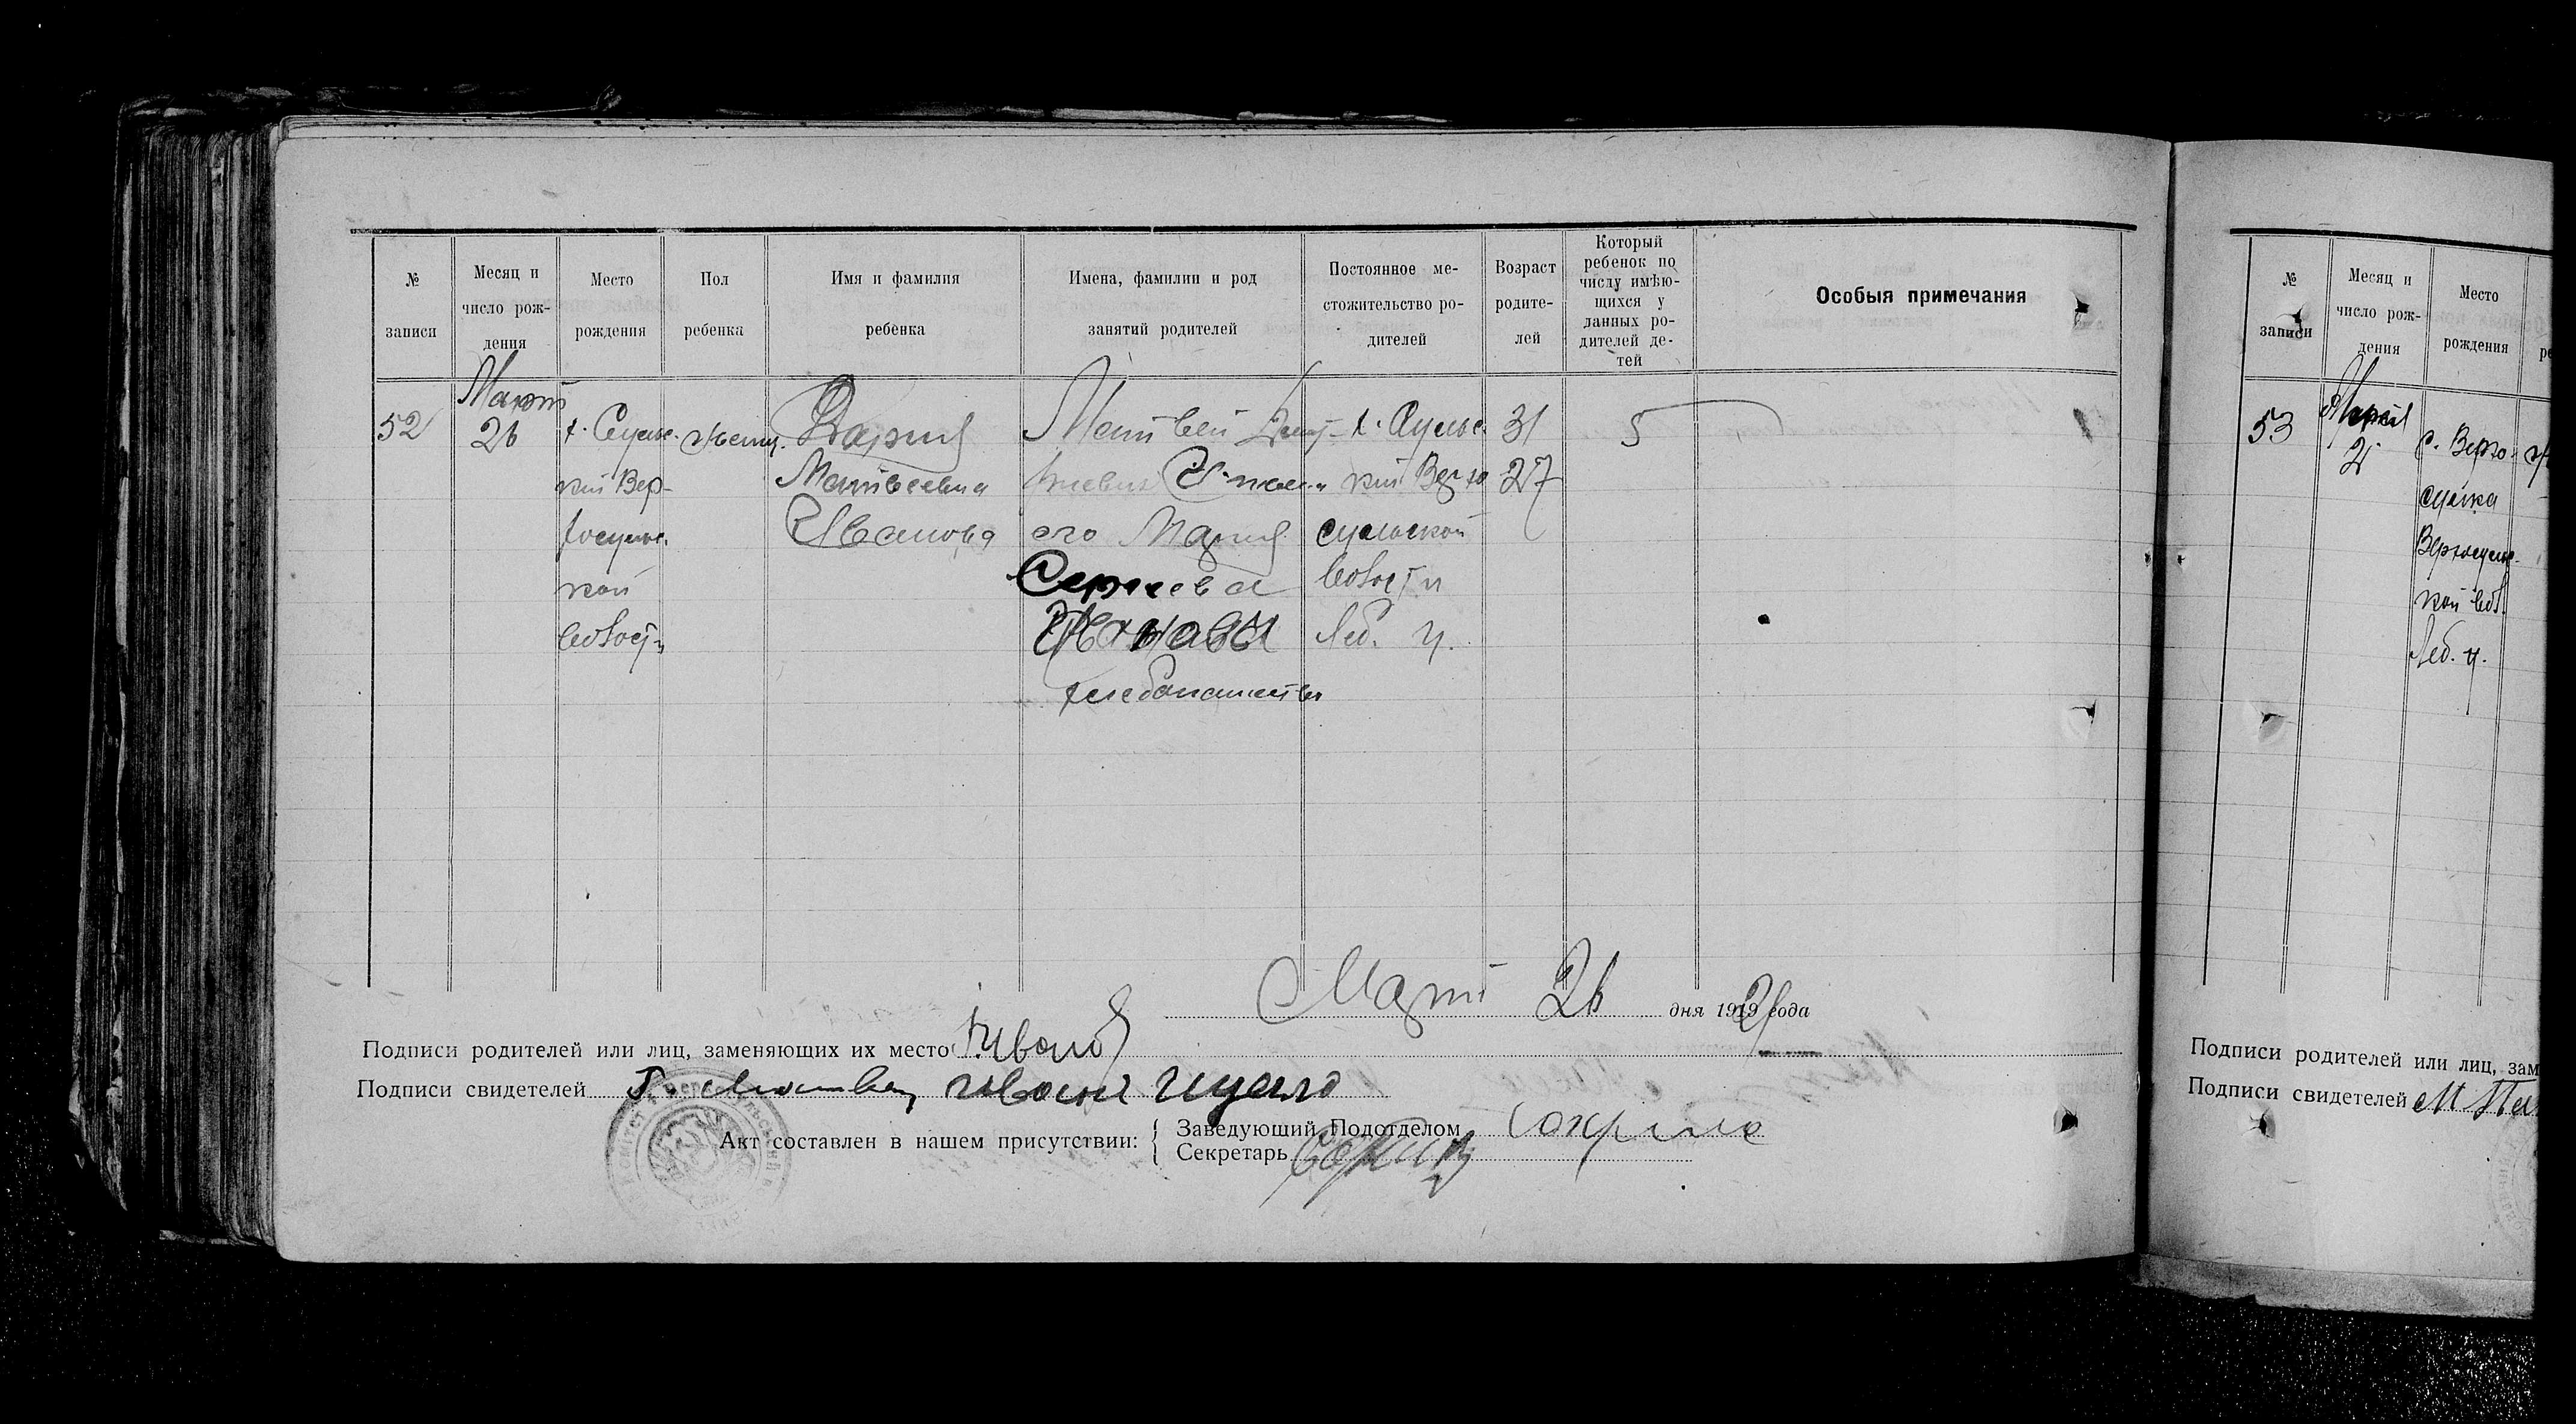 № записи
Месяц и число рож-дения
Место рождения
Пол ребенка
Имя и фамилия ребенка
Имена, фамилии и род занятий родителей
Постоянное ме-стожительство ро-дителей
Возраст родите-лей
Который ребенок по числу имѣю-щихся у данных ро-дителей де-тей
Особыя примечания
52
Март
26
х. Сульс.
кий Вер-
хосульс.
кой
волости
женщ.
Дария
Матвеевна
Иванова
Матвей
его Мария
Сергеева
Ивановы
хлебопашествы
х. Сульс.
кий Верхо
сульской
волости
Леб. у.
31
27
5
Март 26 дня 1919 21 года
Подписи родителей или лиц, заменяющих их место Иванов
Подписи свидетелей
Акт составлен в нашем присутствии:
Заведующий Подотделом
Секретарь
№ записи
Месяц и число рож-дения
Место рождения
53
Апреля
2
с. Верхо.
сулка
Верхосульс.
кой вол.
Леб. у.
Подписи родителей или лиц, зам
Подписи свидетелей